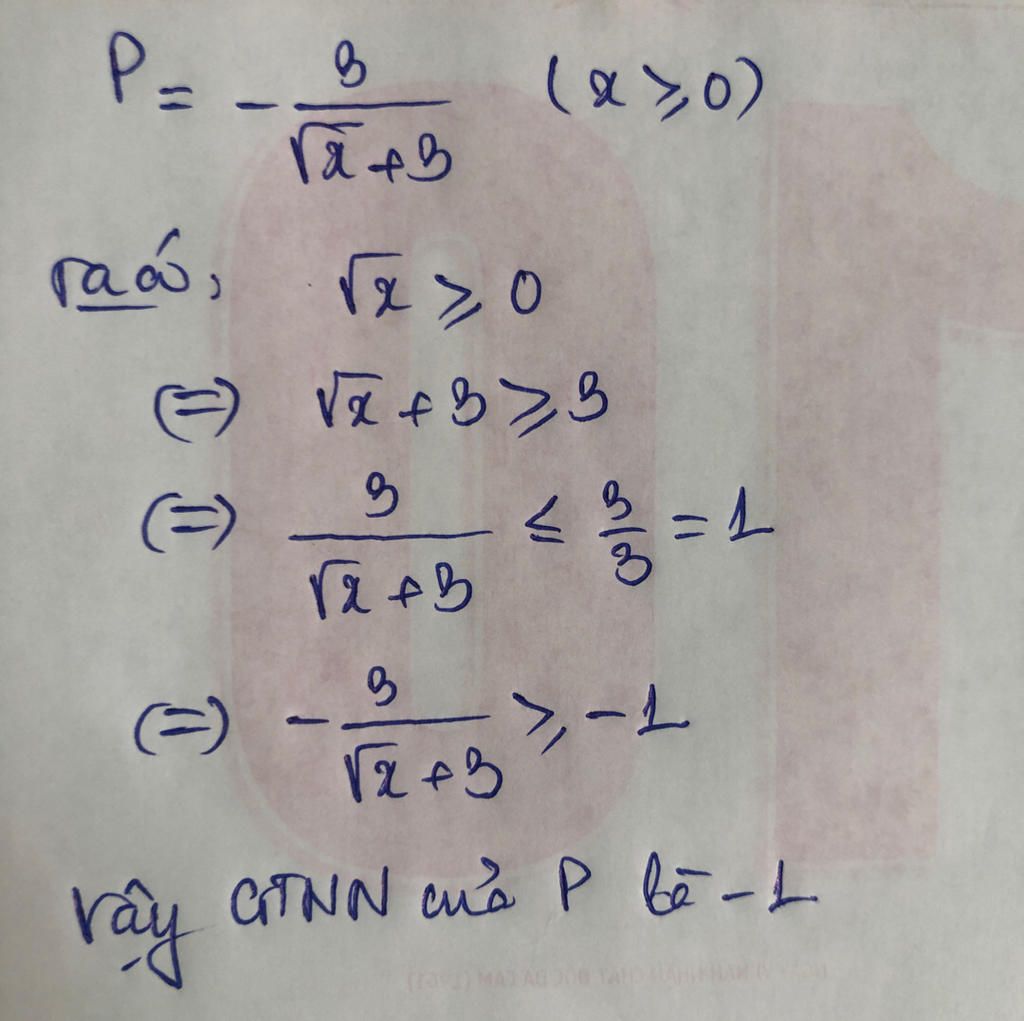 P = - 3 / (√x + 3) (x ≥ 0)
Ta có, √x ≥ 0
(=) √x + 3 ≥ 3
(=) 3 / (√x + 3) ≤ 3/3 = 1
(=) - 3 / (√x + 3) ≥ -1
Vậy GTNN của P là -1